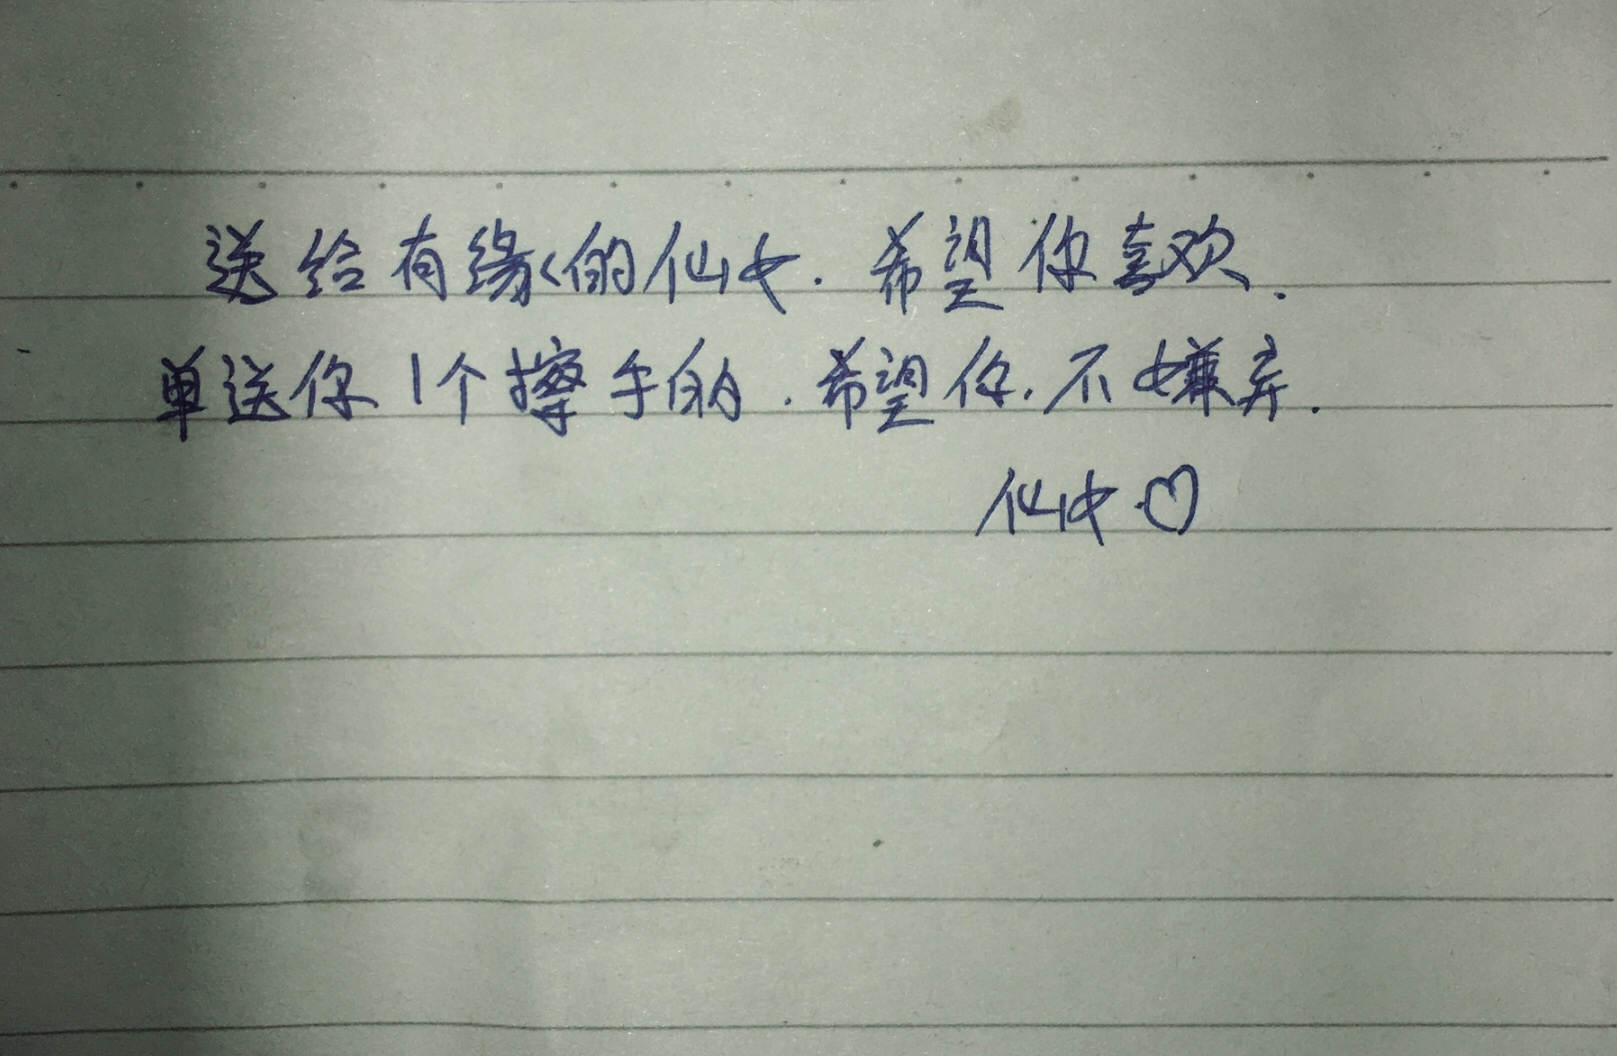 送给有缘的仙女.希望你喜欢.
单送你1个擦手的.希望你.不嫌弃.
仙女♡